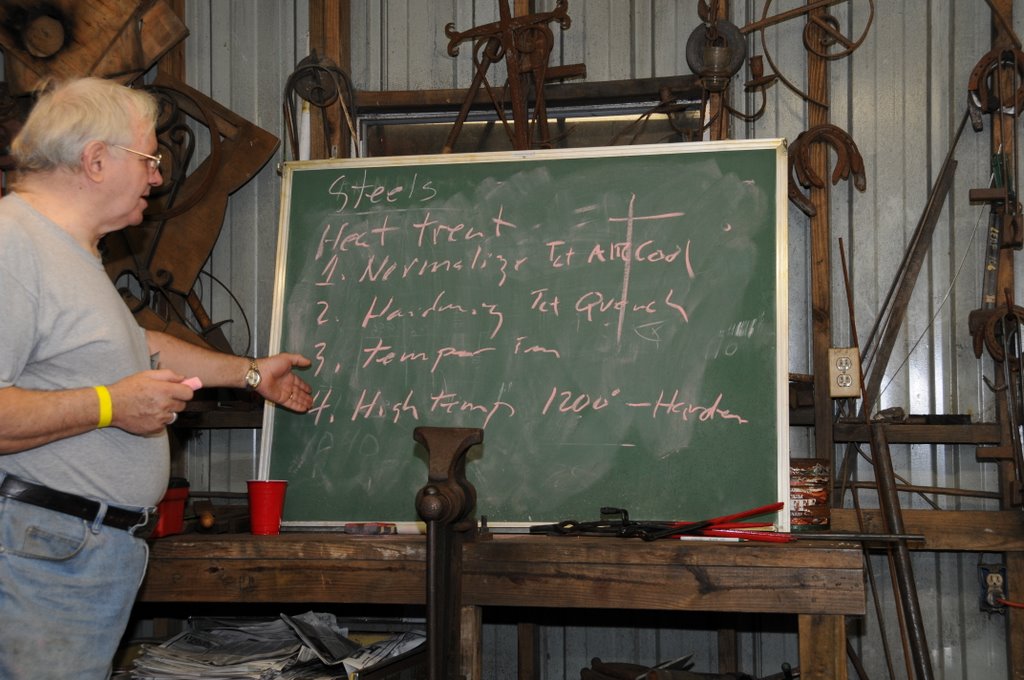 Steels
Heat treat
1. Normalize Tct AIR Cool
2. Hardning Tct Quench
3. temper
4. High temp 1200° - Harden